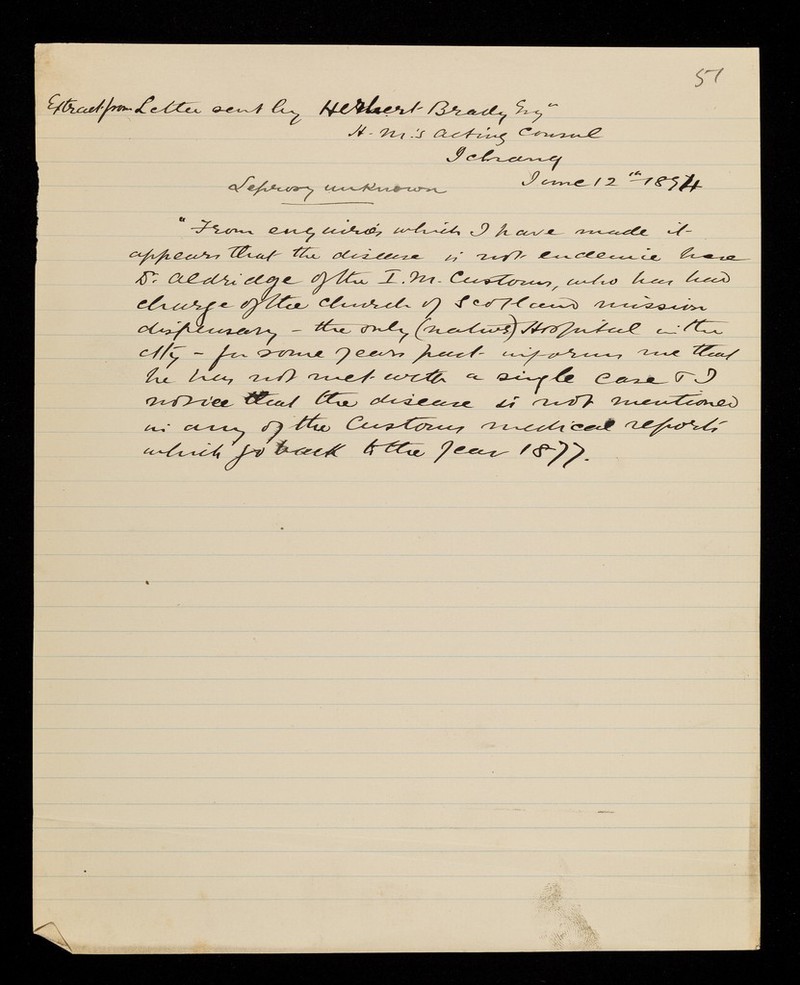 51
Extract from Letter sent by Herbert Brady Esqre
H. M.'s Acting Consul
Ichang
Leprosy unknown June 12th 1894
"From enquiries which I have made it
appears that the disease is not endemic here
Dr. Aldridge of the I. M. Customs, who has had
charge of the Church of Scotland mission
dispensary – the only (native) Hospital in the
city – for some years past informs me that
he has not met with a single case & I
notice that the disease is not mentioned
in any of the Customs medical reports
which go back to the year 1877.